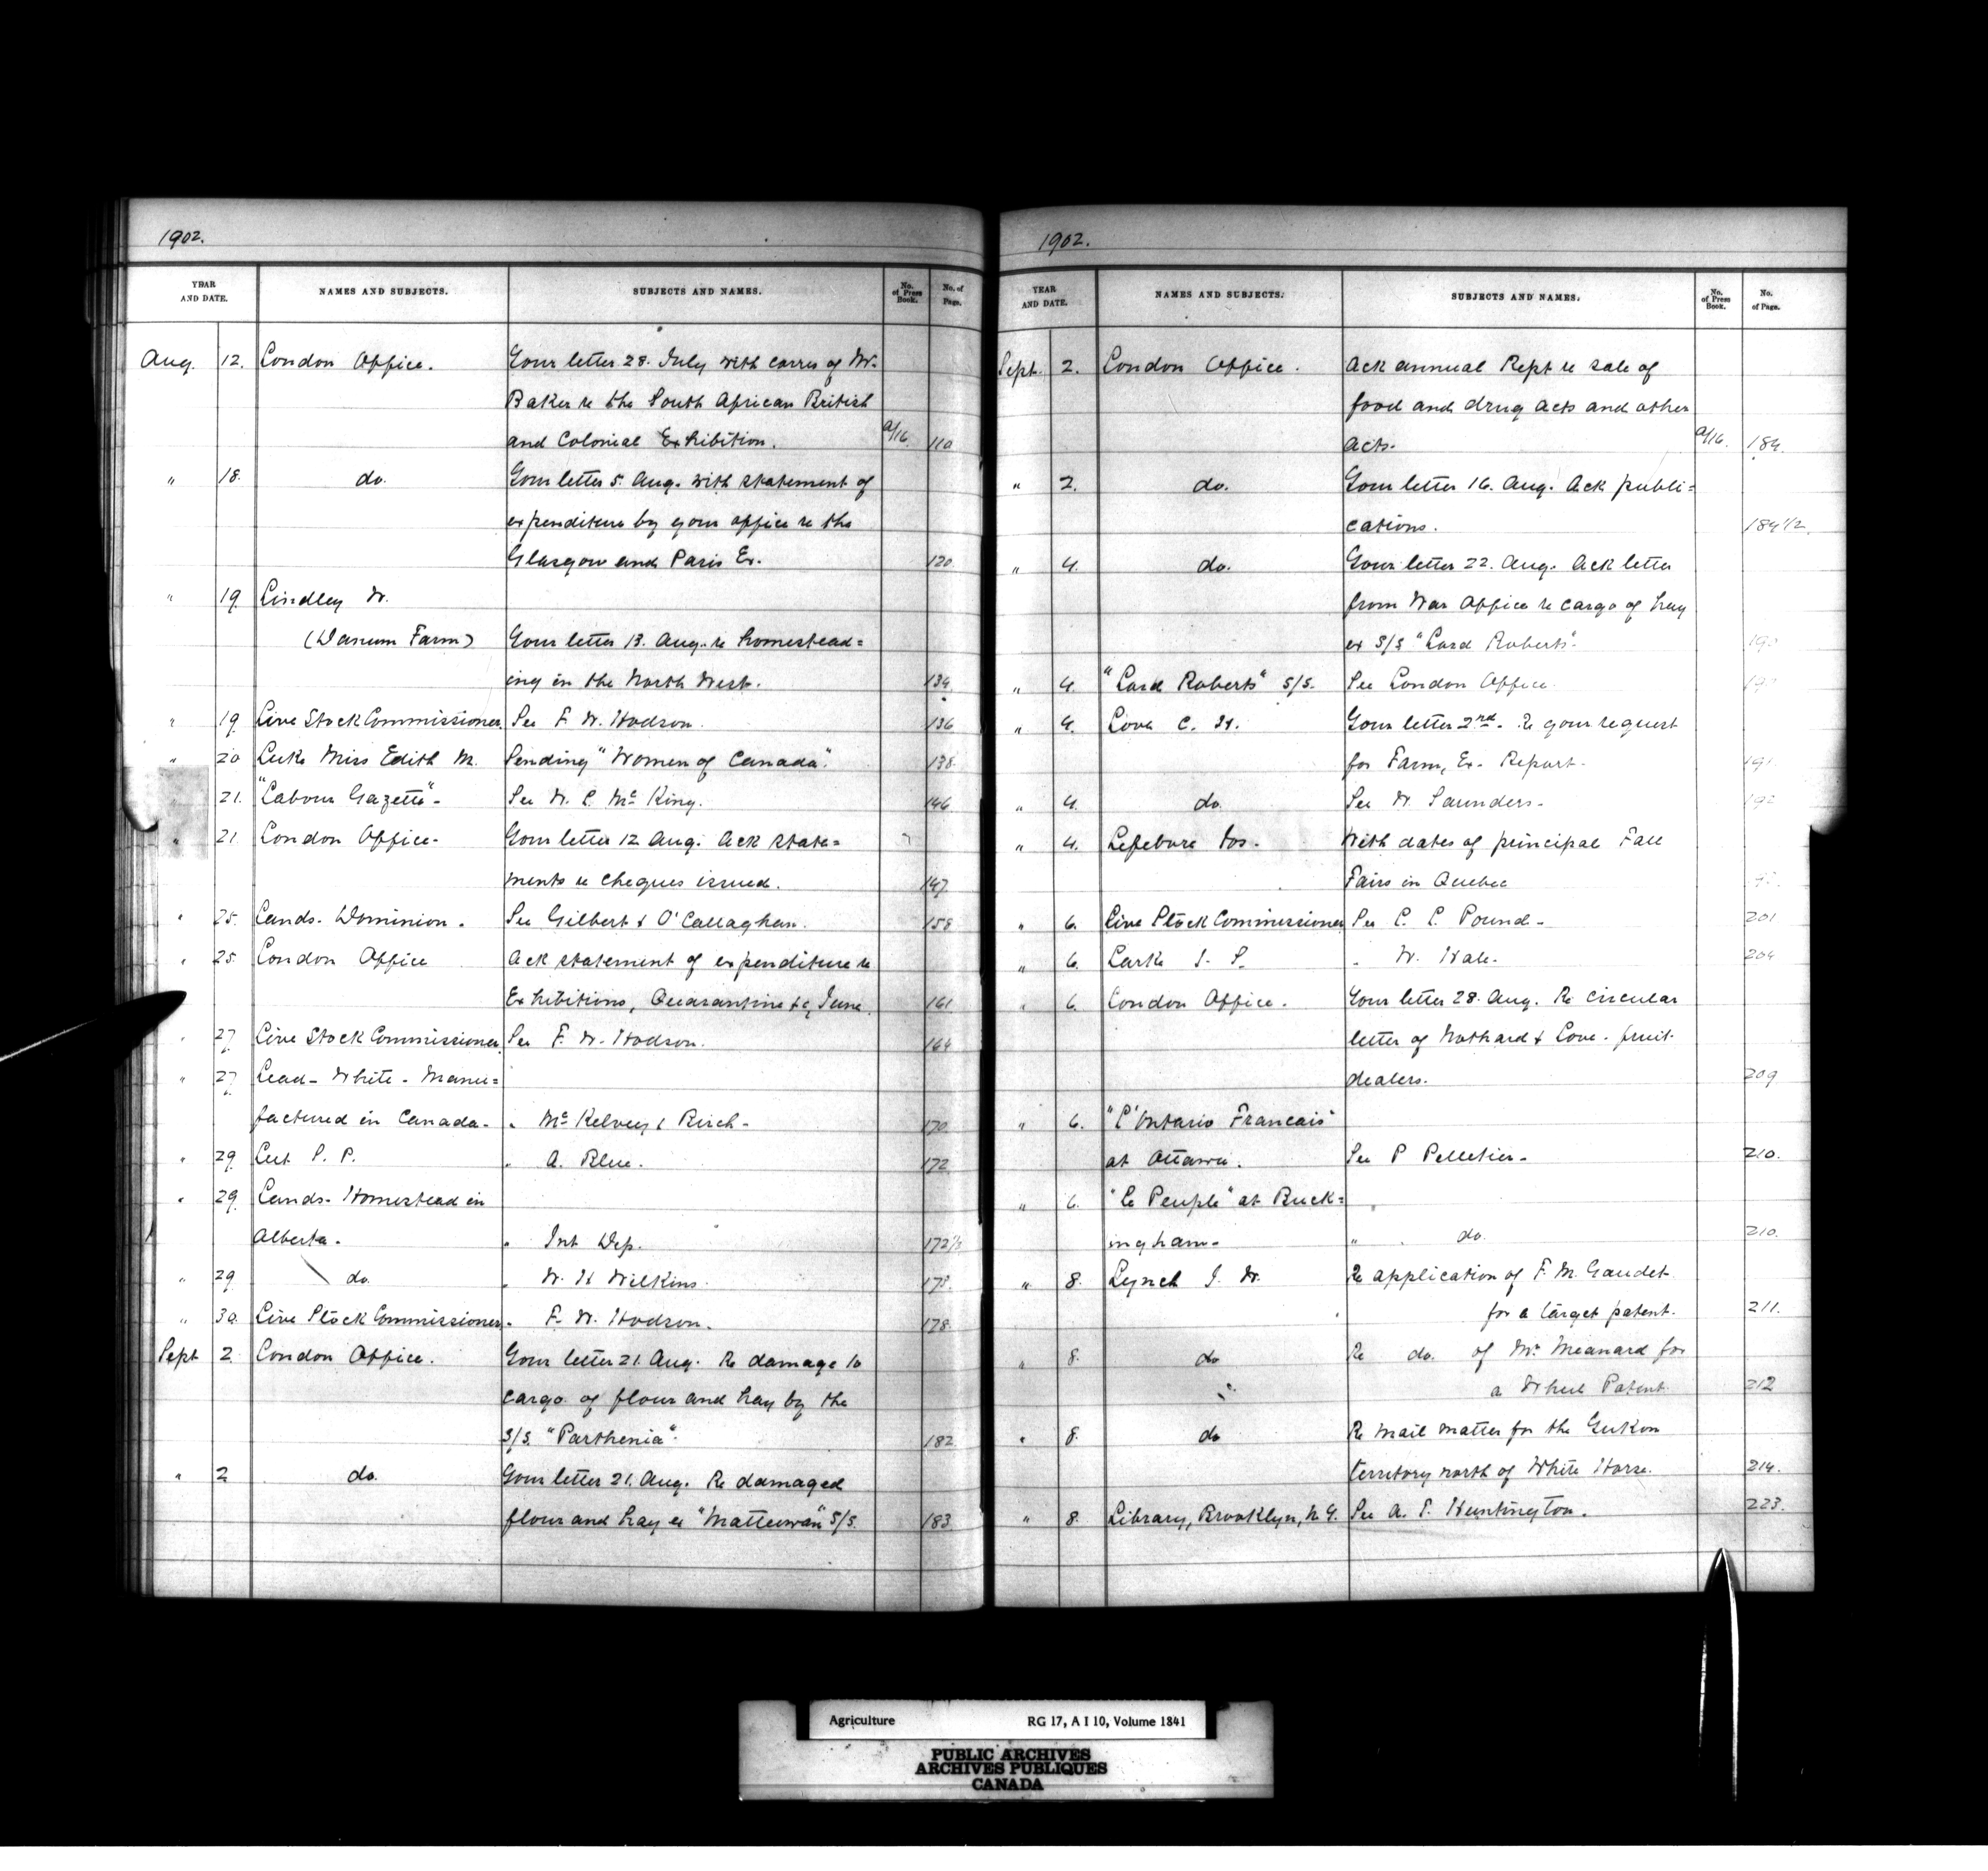 1902.
YEAR AND DATE. NAMES AND SUBJECTS. SUBJECTS AND NAMES. No. of Press Book. No. of Page.
Aug. 12. London Office. Your letter 28. July with corres of W.
Baker re the South African British
and Colonial Exhibition. a/16. 110
" 18. do. Your letter 5. Aug. with statement of
expenditure by your office re the
Glasgow and Paris Ex. 120
" 19. Lindley W.
(Danum Farm) Your letter 13. Aug. re homestead=
ing in the North West. 134.
" 19. Live Stock Commissioner. See F. W. Hodson. 136
" 20 Luke Miss Edith M. Sending "Women of Canada". 138.
" 21. "Labour Gazette"- See W. L. Mc King. 146
" 21. London Office- Your letter 12 Aug. Ack state=
ments re cheques issued. 147
" 25. Lands- Dominion. See Gilbert & O'Callaghan. 158
" 25. London Office Ack statement of expenditure re
Exhibitions, Quarantine &c, June. 161
" 27. Live Stock Commissioner. See F. W. Hodson. 164
" 27. Lead- White- Manu=
factured in Canada- " Mc Kelvey & Birch- 170
" 29. L. P. " A. Blue. 172
" 29. Lands- Homestead in
Alberta. " Int Dep. 172½
" 29. do. " W. H Wilkins. 173.
" 30. Live Stock Commissioner. " F. W. Hodson. 178.
Sept 2. London Office. Your letter 21. Aug. Re damage to
cargo of flour and hay by the
S/S. "Parthenia". 182
" 2 do. Your letter 21. Aug. Re damaged
flour and hay ex "Matteawan" S/S. 183
1902.
YEAR AND DATE. NAMES AND SUBJECTS. SUBJECTS AND NAMES. No. of Press Book. No. of Page.
Sept. 2. London Office. Ack annual Rept re sale of
food and drug acts and other
acts. a/16. 184.
" 2. do. Your letter 16. Aug. Ack publi=
cations. 184 1/2.
" 4. do. Your letter 22. Aug. Ack letter
from War Office re cargo of hay
ex S/S "Lord Roberts". 190
" 4. "Lord Roberts" S/S. See London Office. 190
" 4. Love C. H. Your letter 2nd- Re your request
for Farm, Ex- Report. 191.
" 4. do. See W. Saunders- 192
" 4. Lefebvre Jos. With dates of principal Fall
Fairs in Quebec
" 6. Live Stock Commissioner See C. C. Pound- 201
" 6. Larke J. S. " W. Hale. 204
" 6. London Office. Your letter 28. Aug. Re circular
letter of Nothard & Love. fruit-
dealers. 209
" 6. "L'Ontario Francais"
at Ottawa. See P Pelletier- 210.
" 6. "Le Peuple" at Buck=
ingham- " do. 210.
" 8. Lynch J. W. Re application of F. M. Gaudet
for a target patent. 211.
" 8. do Re do. of Mr. Meanard for
a Wheel Patent. 212
" 8. do Re mail matter for the Yukon
territory north of White Horse. 214.
" 8. Library, Brooklyn, N. Y. See A. T. Huntington. 223.
Agriculture RG 17, A I 10, Volume 1841
PUBLIC ARCHIVES
ARCHIVES PUBLIQUES
CANADA